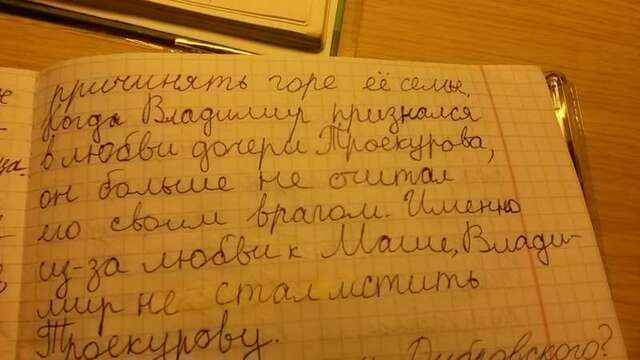 причинять горе её семье.
Когда Владимир признался
в любви дочери Троекурова,
он больше не считал
его своим врагом. Именно
из-за любви к Маше, Влади-
мир не стал мстить
Троекурову.
Дубровского?